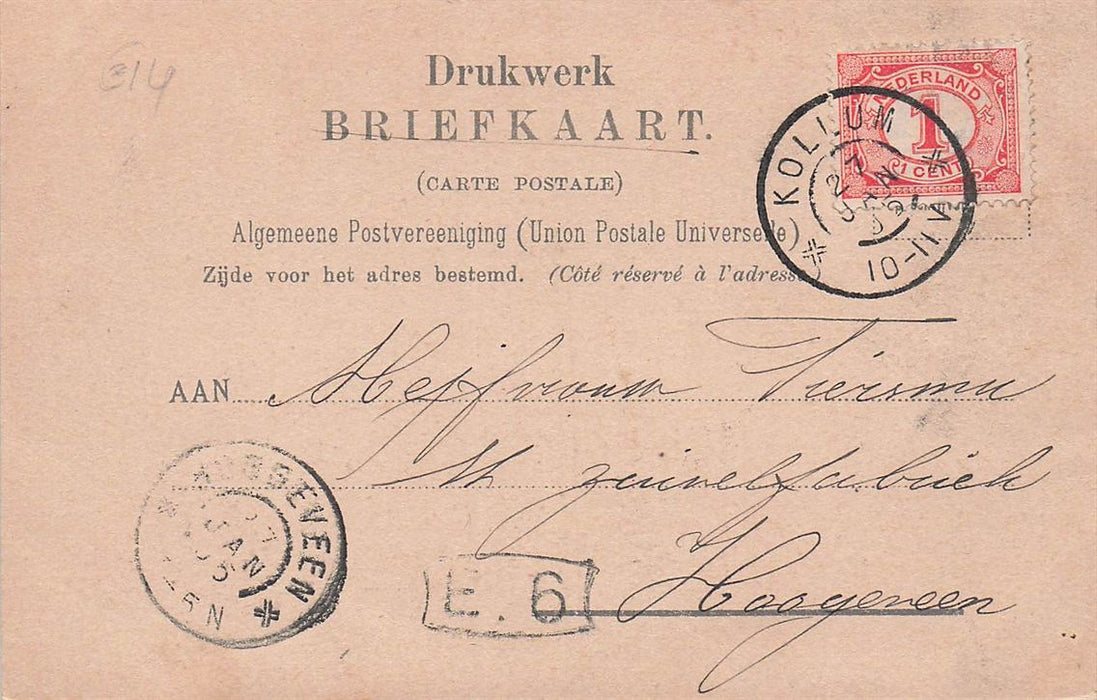 Drukwerk
NEDERLAND
1
1 CENT
BRIEFKAART.
KOLLUM
27
JAN
10-11V
(CARTE POSTALE)
Algemeene Postvereeniging (Union Postale Universelle)
Zijde voor het adres bestemd. (Côté réservé à l'adresse
AAN Mejfvrouw Tiersma
zuivelfabriek
HOOGEVEEN
27
JAN
05
N
E. 6
Hoogeveen